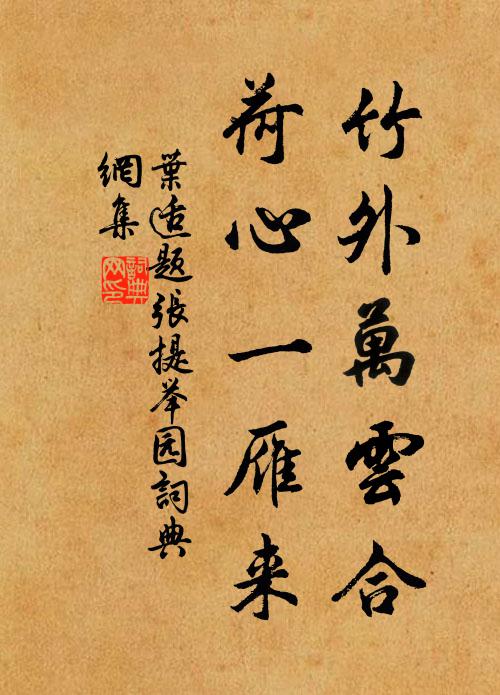 竹外萬雲合
荷心一雁来
葉适题張提举园詞典
網集
詞典
网印